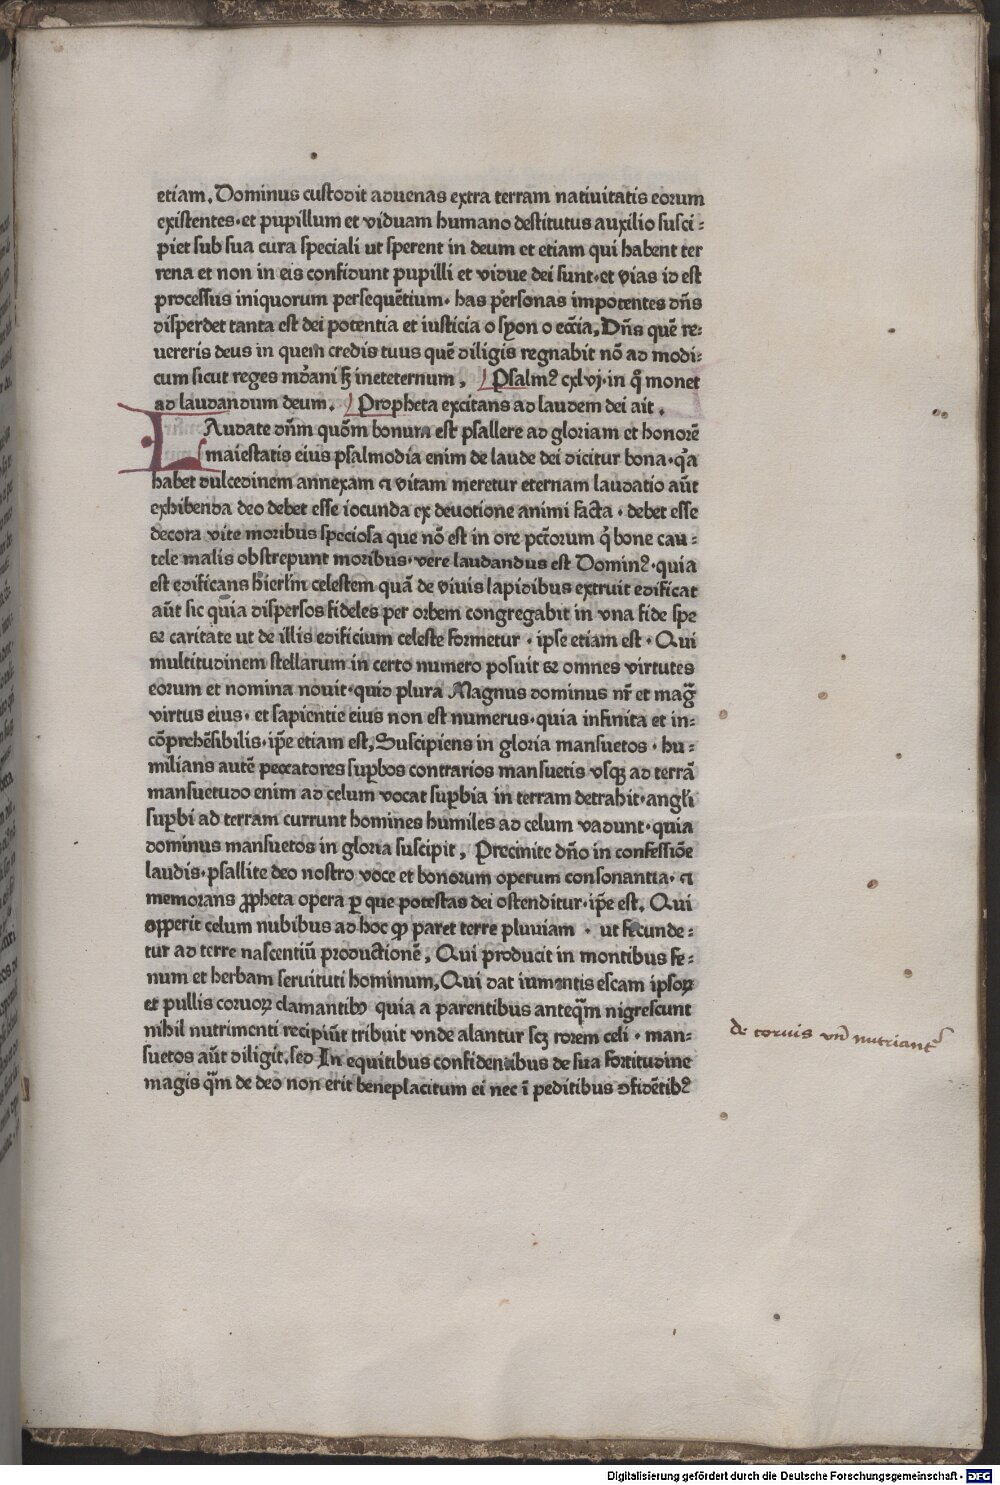 etiam. Dominus custodit aduenas extra terram nativitatis eorum
existentes·et pupillum et viduam humano destitutus auxilio susci⸗
piet sub sua cura speciali ut sperent in deum et etiam qui habent ter
rena et non in eis confidunt pupilli et vidue dei sunt·et vias id est
processus iniquorum persequētium· has personas impotentes dn̄s
disperdet tanta est dei potentia et iusticia o syon o ecc̄ia, Dn̄s quē re⸗
uereris deus in quem credis tuus quē diligis regnabit nō ad modi⸗
cum sicut reges mūdani sꝫ ineteternum, Psalmꝰ cxlvj·in q̄ monet
ad laudandum deum. Propheta excitans ad laudem dei ait.
LAudate dn̄m quōm bonum est psallere ad gloriam et honorē
maiestatis eius psalmodia enim de laude dei dicitur bona·qͣa
habet dulcedinem annexam et vitam meretur eternam laudatio aūt
exhibenda deo debet esse iocunda ex deuotione animi facta · debet esse
decora vite moribus speciosa que nō est in ore pctōrum qͥ bone cau⸗
tele malis obstrepunt moribus·vere laudandus est Dominꝰ·quia
est edificans hierl̄m celestem quā de viuis lapidibus extruit edificat
aūt sic quia dispersos fideles per orbem congregabit in vna fide spe
et caritate ut de illis edificium celeste formetur · ipse etiam est · Qui
multitudinem stellarum in certo numero posuit et omnes virtutes
eorum et nomina novit·quid plura Magnus dominus nr̄ et maḡ
virtus eius· et sapientie eius non est numerus·quia infinita et in⸗
cōprehēsibilis·ip̄e etiam est, Suscipiens in gloria mansuetos · hu⸗
milians autē peccatores suꝑbos contrarios mansuetis vsqꝫ ad terrā
mansuetudo enim ad celum vocat suꝑbia in terram detrahit·angl̄i
suꝑbi ad terram currunt homines humiles ad celum vadunt·quia
dominus mansuetos in gloria suscipit, Precinite dn̄o in confessiōe
laudis·psallite deo nostro voce et bonorum operum consonantia· et
memorans ꝓpheta opera ꝑ que potestas dei ostenditur·ip̄e est, Qui
opperit celum nubibus ad hoc ꝙ paret terre pluviam · ut fecunde⸗
tur ad terre nascentiū productionē, Qui producit in montibus fe⸗
num et herbam servituti hominum, Qui dat iumentis escam ipsoꝝ
et pullis coruoꝝ clamantibꝰ quia a parentibus anteq̄m nigrescunt
nihil nutrimenti recipiūt tribuit vnde alantur scꝫ rorem celi · man⸗
suetos aūt diligit·sed In equitibus confidentibus de sua fortitudine
magis q̄m de deo non erit beneplacitum ei nec ī peditibus ꝯfidētibꝰ
de coruis vn̄ nutriantꝰ
Digitalisierung gefördert durch die Deutsche Forschungsgemeinschaft · DFG